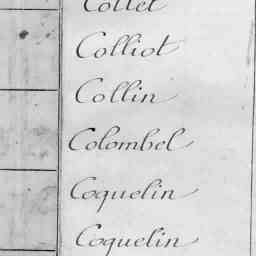 Collet
Colliot
Collin
Colombel
Coquelin
Coquelin